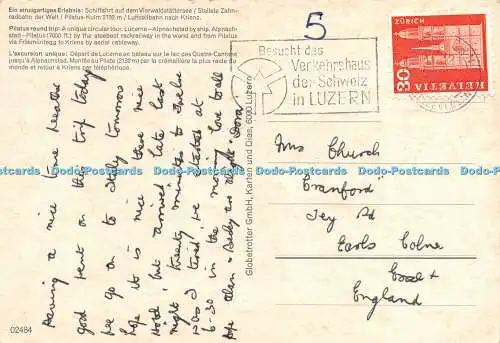 Ein einzigartiges Erlebnis: Schiffahrt auf dem Vierwaldstättersee / Steilste Zahn-
radbahn der Welt / Pilatus-Kulm 2132 m / Luftseilbahn nach Kriens.
Pilatus round trip: A unique circular tour. Lucerne – Alpnachstad by ship. Alpnach-
stad – Pilatus (7000 ft.) by the steepest rackrailway in the world and from Pilatus
via Fräkmüntegg to Kriens by aerial cableway.
L'excursion unique: Départ de Lucerne en bateau sur le lac des Quatre-Cantons
jusqu'à Alpnachstad. Montée au Pilate (2132 m) par la crémaillère la plus raide du
monde et retour à Kriens par téléphérique.
5
Besucht das
Verkehrshaus
der Schweiz
in LUZERN
ZÜRICH
30
HELVETIA
Having a nice time weather
good went on this trip today
we go on to Italy tomorrow
hope it is nice there nice
Hotel but arrived late last
night twenty minutes to twelve
was I tired, we started at
6-30 in the morning love to all
hope Alan + Becky are alright. Dora
Globetrotter GmbH, Karten und Dias, 6000 Luzern
Mrs Church
"Cranford"
Tey Rd
Earls Colne
Essex
England
02484
Dodo-Postcards Dodo-Postcards Dodo-Postcards Dodo-Postcards